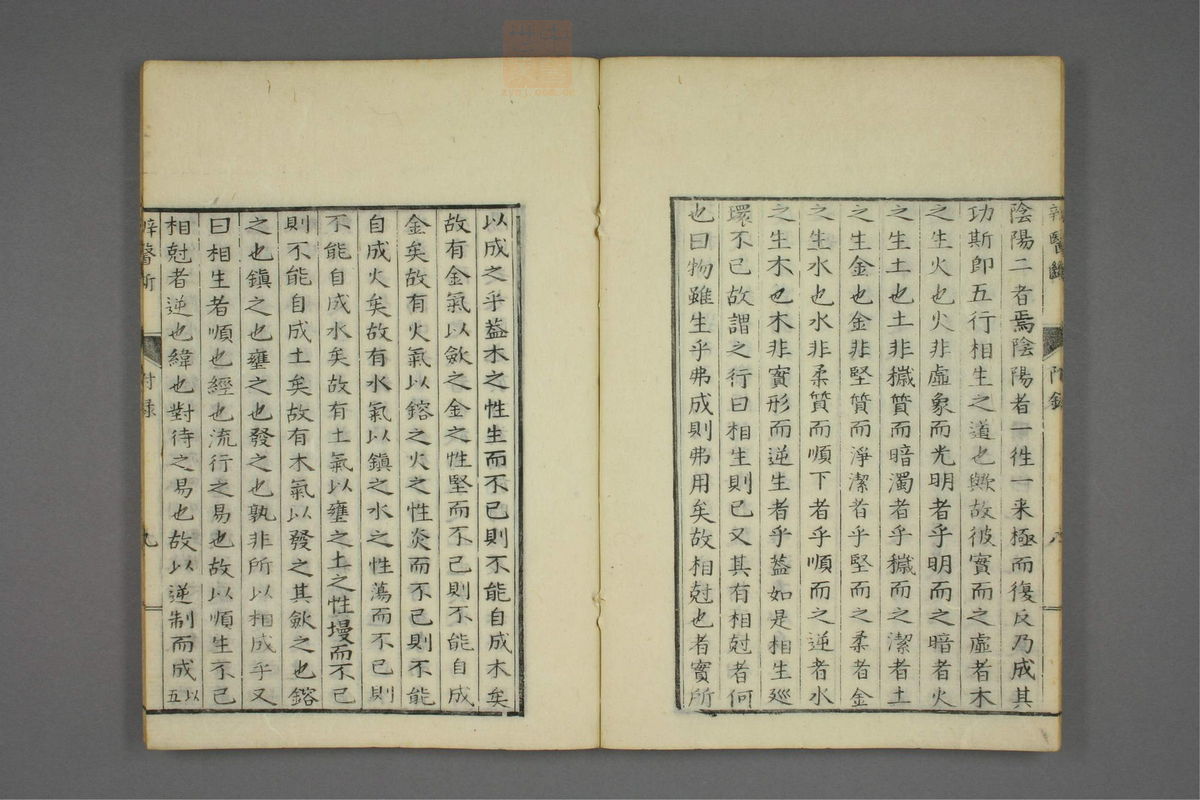 辨醫斷
附錄
八
陰陽二者焉陰陽者一徃一来極而復反乃成其
功斯即五行相生之道也歟故彼實而之虛者木
之生火也火非虛象而光明者乎明而之暗者火
之生土也土非穢質而暗濁者乎穢而之潔者土
之生金也金非堅質而淨潔者乎堅而之柔者金
之生水也水非柔質而順下者乎順而之逆者水
之生木也木非實形而逆生者乎葢如是相生廵
環不已故謂之行曰相生則已又其有相尅者何
也曰物雖生乎弗成則弗用矣故相尅也者實所
以成之乎葢木之性生而不已則不能自成木矣
故有金氣以歛之金之性堅而不已則不能自成
金矣故有火氣以鎔之火之性炎而不已則不能
自成火矣故有水氣以鎮之水之性蕩而不已則
不能自成水矣故有土氣以壅之土之性墁而不已
則不能自成土矣故有木氣以發之其歛之也鎔
之也鎮之也壅之也發之也孰非所以相成乎又
曰相生者順也經也流行之易也故以順生不已
相尅者逆也緯也對待之易也故以逆制而成五以
辨醫斷
附錄
九